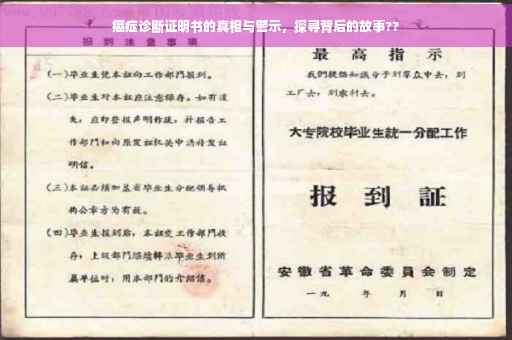 癌症诊断证明书的真相与警示，探寻背后的故事??
报到注意事项
(一)毕业生凭本证向工作部门报到。
(二)毕业生对本证应注意保存。如有遗
失，应即登报声明作废，并报告工
作部门和向原发证机关申请补发证
明信。
(三)本证必须加盖省毕业生分配领导机
构公章方为有效。
(四)毕业生报到后，本证交工作部门收
存；上级部门
毕业生到所
属单位时，用本部门的介绍信。
最高指示
我们提倡知识分子到群众中去，到
工厂去，到农村去。
大专院校毕业生统一分配工作
报到证
安徽省革命委员会制定
一九 年 月 日